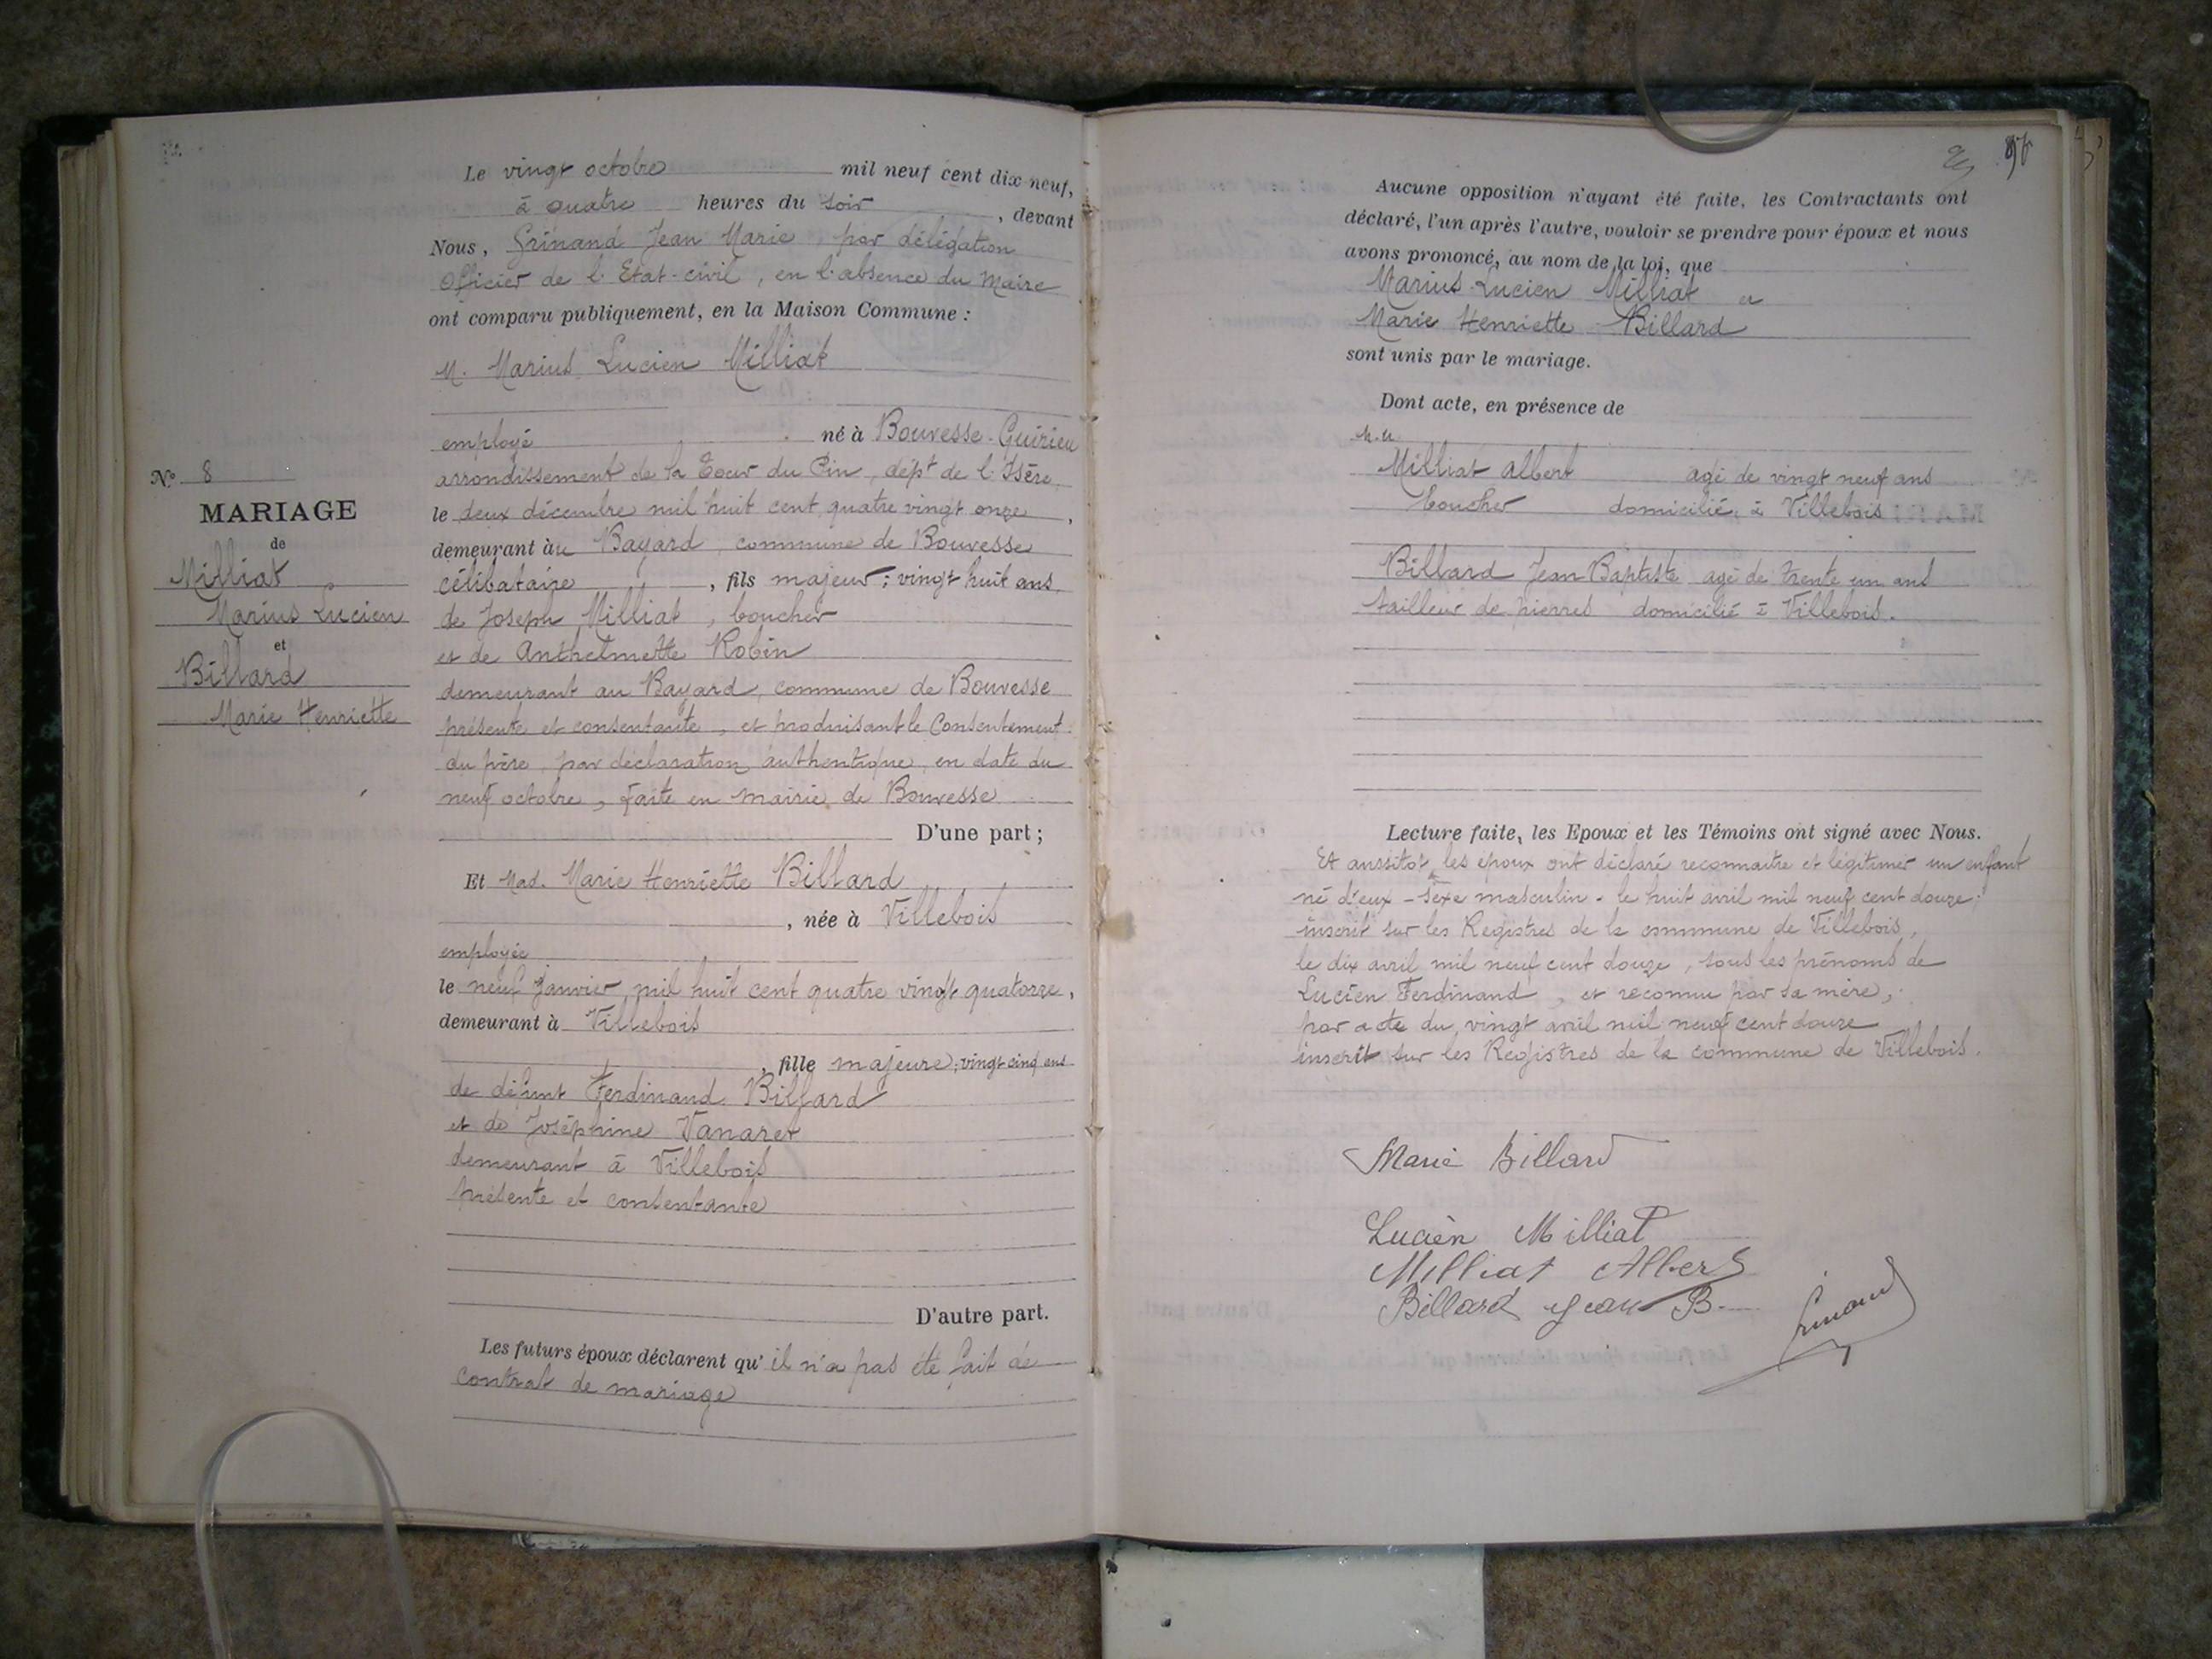 Le vingt octobre mil neuf cent dix-neuf,
à quatre heures du soir, devant
Nous, Grinand Jean Marie, par délégation
Officier de l'Etat-civil, en l'absence du Maire
ont comparu publiquement, en la Maison Commune :
M. Marius Lucien Milliat
employé né à Bouvesse-Quirieu
arrondissement de la Tour du Pin, dépt de l'Isère
le deux décembre mil huit cent quatre vingt onze,
demeurant au Bayard, commune de Bouvesse
célibataire, fils majeur; vingt huit ans
de Joseph Milliat, boucher
et de Anthelmette Robin
demeurant au Bayard, commune de Bouvesse
présente et consentante, et produisant le Consentement
du père, par déclaration authentique, en date du
neuf octobre, faite en mairie de Bouvesse
D'une part ;
Et Mad. Marie Henriette Billard
, née à Villebois
employée
le neuf Janvier mil huit cent quatre vingt quatorze,
demeurant à Villebois
, fille majeure; vingt cinq ans
de défunt Ferdinand Billard
et de Joséphine Vanaret
demeurant à Villebois
présente et consentante
D'autre part.
Les futurs époux déclarent qu'il n'a pas été fait de
contrat de mariage
N° 8
MARIAGE
de
Milliat
Marius Lucien
et
Billard
Marie Henriette
Aucune opposition n'ayant été faite, les Contractants ont
déclaré, l'un après l'autre, vouloir se prendre pour époux et nous
avons prononcé, au nom de la loi, que
Marius Lucien Milliat et
Marie Henriette Billard
sont unis par le mariage.
Dont acte, en présence de
M.M.
Milliat Albert agé de vingt neuf ans
boucher domicilié à Villebois
Billard Jean Baptiste agé de trente un ans
tailleur de pierres domicilié à Villebois.
Lecture faite, les Epoux et les Témoins ont signé avec Nous.
Et aussitot les époux ont déclaré reconnaitre et légitimer un enfant
né d'eux - sexe masculin - le huit avril mil neuf cent douze;
inscrit sur les Registres de la commune de Villebois,
le dix avril mil neuf cent douze, sous les prénoms de
Lucien Ferdinand, et reconnu par sa mère,
par acte du vingt avril mil neuf cent douze
inscrit sur les Registres de la commune de Villebois.
Marie Billard
Lucien Milliat
Milliat Albert
Billard Jean B.
Grinand